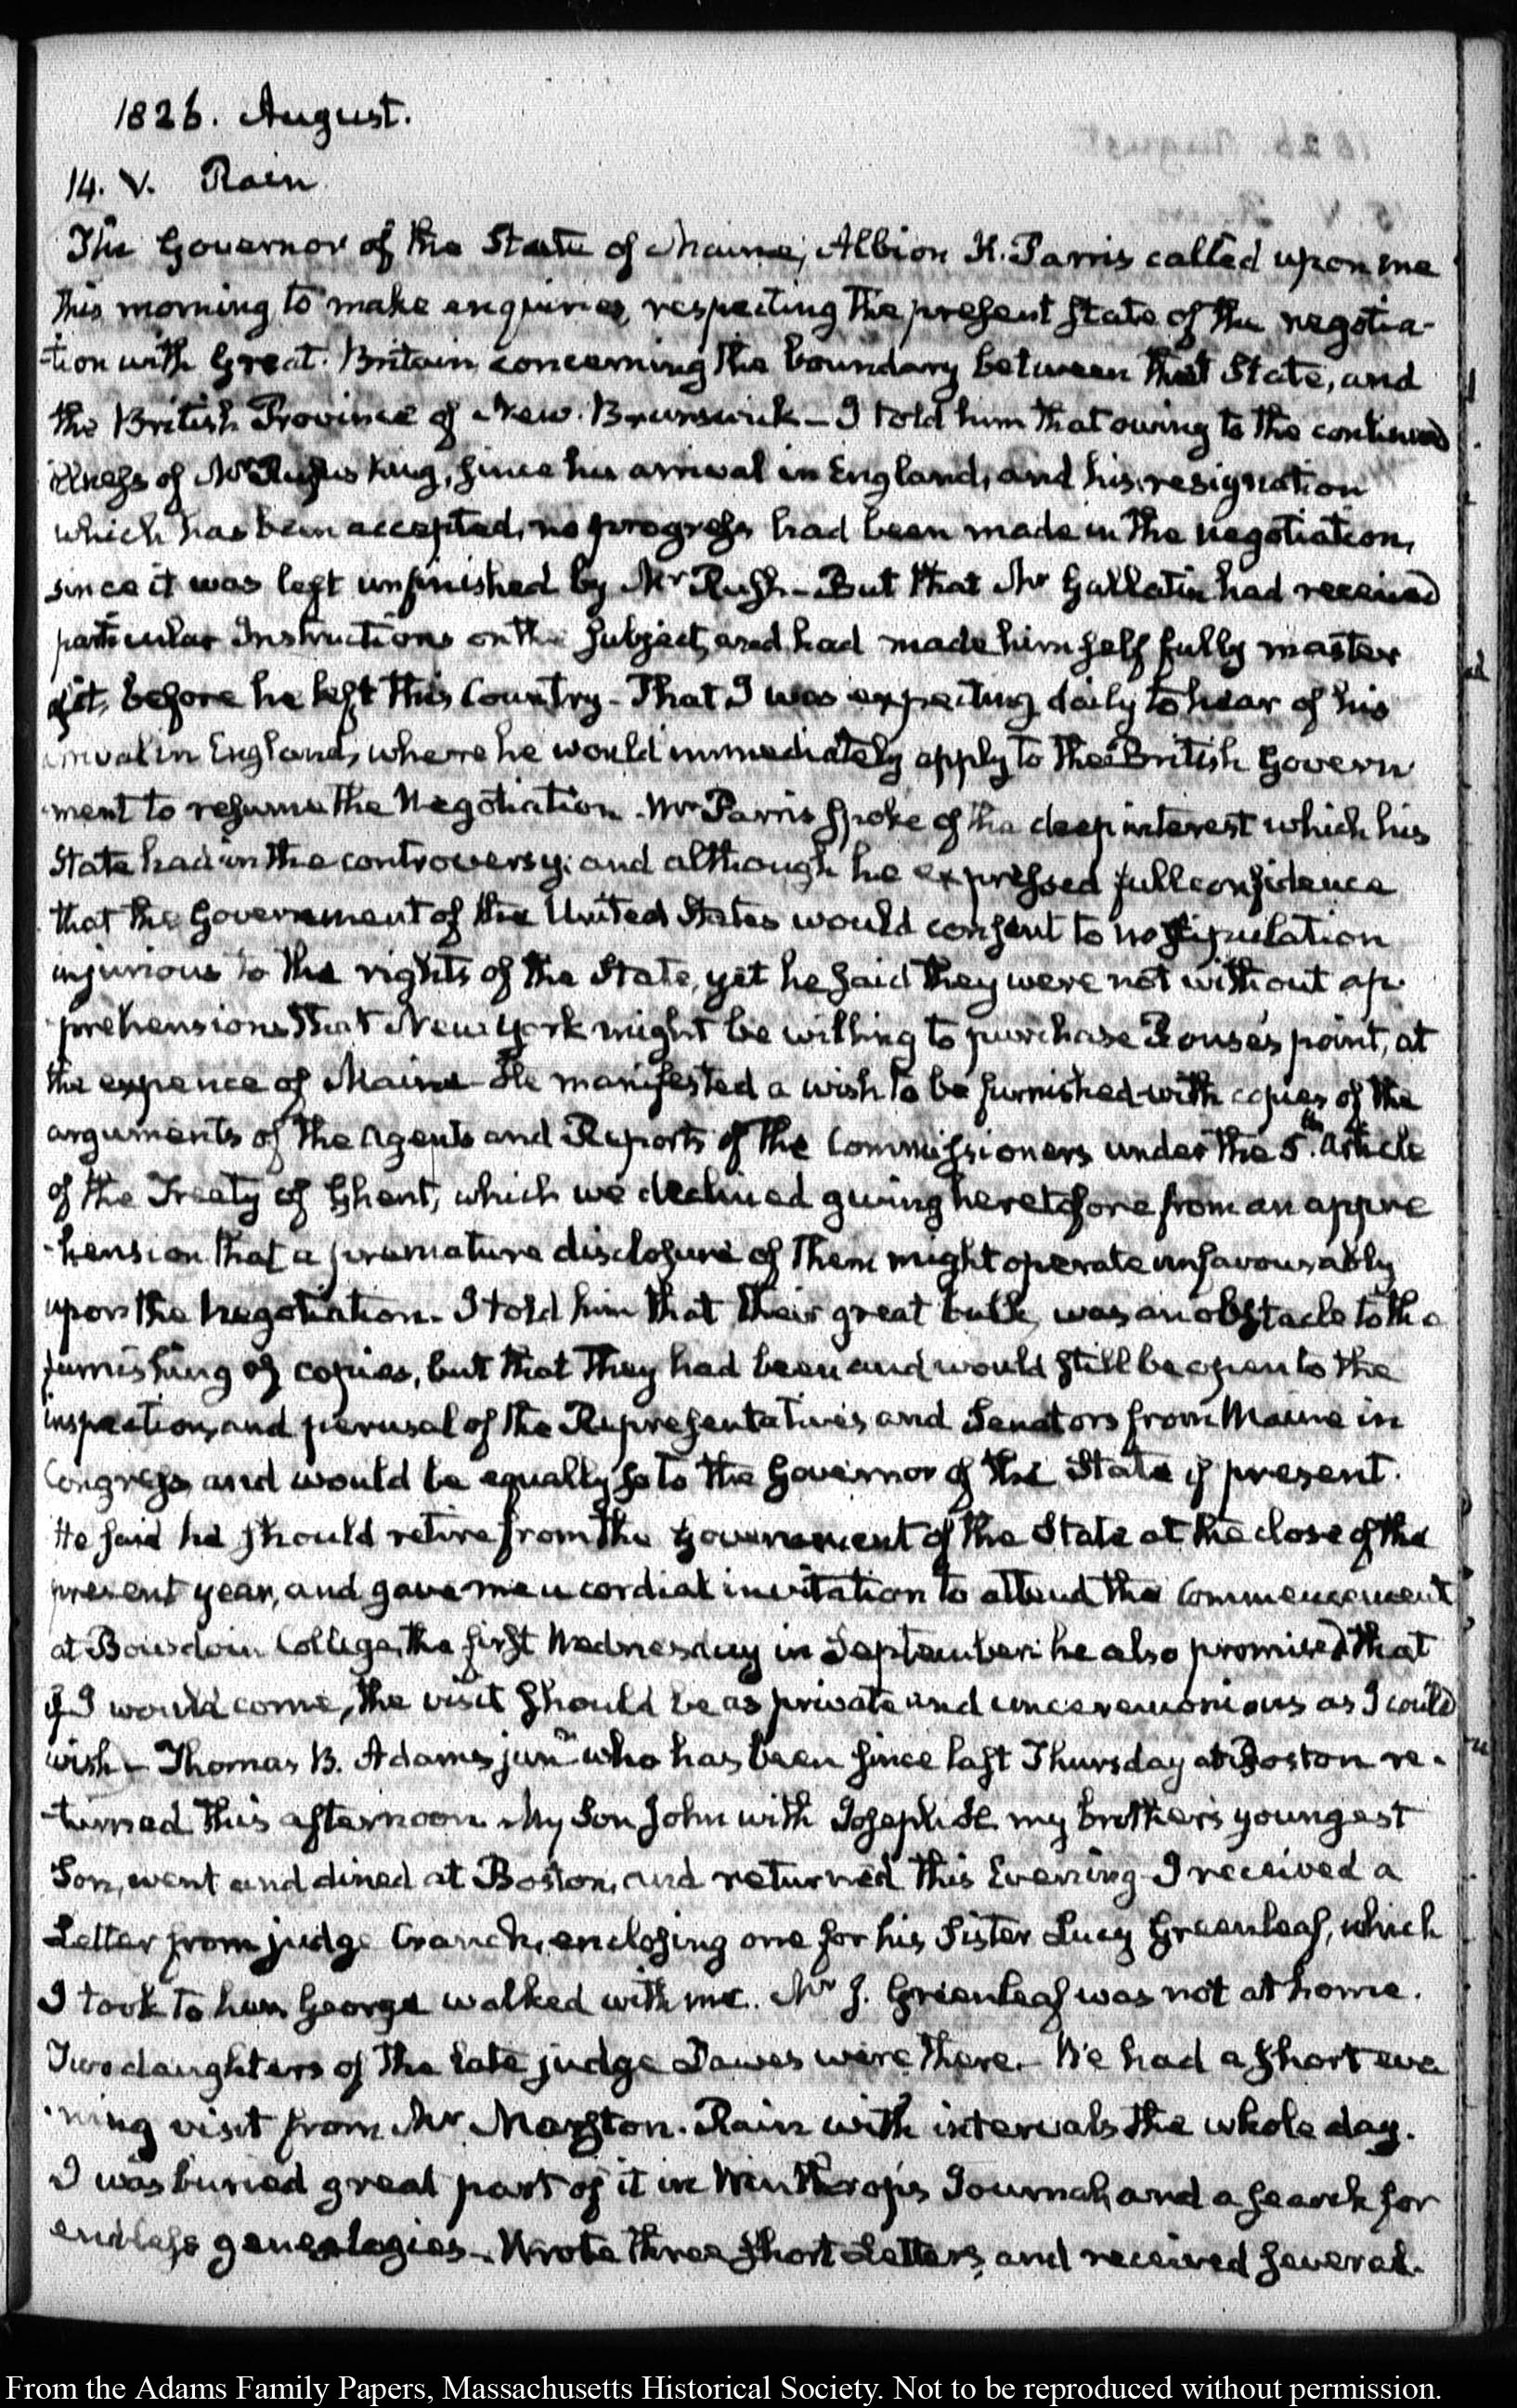 1826. August.
14. V. Rain
The Governor of the State of Maine, Albion K. Parris called upon me
this morning to make enquiries, respecting the present state of the negotia-
-tion with Great-Britain concerning the boundary between that State, and
the British Province of New-Brunswick—I told him that owing to the continued
illness of Mr Rufus King, since his arrival in England, and his resignation
which has been accepted, no progress had been made in the negotiation,
since it was left unfinished by Mr Rush—But that Mr Gallatin had received
particular Instructions on the subject, and had made himself fully master
of it, before he left this Country—That I was expecting daily to hear of his
arrival in England, where he would immediately apply to the British Govern
-ment to resume the Negotiation. Mr Parris spoke of the deep interest which his
State had in the controversy; and although he expressed full confidence
that the Government of the United States would consent to no stipulation
injurious to the rights of the State, yet he said they were not without ap-
-prehensions that New York might be willing to purchase Rouse's point, at
the expence of Maine—He manifested a wish to be furnished with copies of the
arguments of the Agents and Reports of the Commissioners under the 5th Article
of the Treaty of Ghent, which we declined giving heretofore from an appre
-hension that a premature disclosure of them might operate unfavourably
upon the negotiation. I told him that their great bulk, was an obstacle to the
furnishing of copies, but that they had been and would still be open to the
inspection and perusal of the Representatives and Senators from Maine in
Congress and would be equally so to the Governor of the State if present.
He said he should retire from the Government of the State at the close of the
present year, and gave me a cordial invitation to attend the Commencement
at Bowdoin College, the first Wednesday in September: he also promised that
if I would come, the visit should be as private and unceremonious as I could
wish—Thomas B. Adams junr who has been since last Thursday at Boston re-
-turned this afternoon. My Son John with Joseph H. my brother's youngest
Son, went and dined at Boston, and returned this Evening—I received a
Letter from judge Cranch, enclosing one for his Sister Lucy Greenleaf, which
I took to her. George walked with me. Mr J. Greenleaf was not at home.
Two daughters of the late judge Dawes were there.—We had a short eve
-ning visit from Mr Marston. Rain with intervals the whole day.
I was buried great part of it in Winthrop's Journal, and a search for
endless genealogies—Wrote three short Letters, and received several.
From the Adams Family Papers, Massachusetts Historical Society. Not to be reproduced without permission.